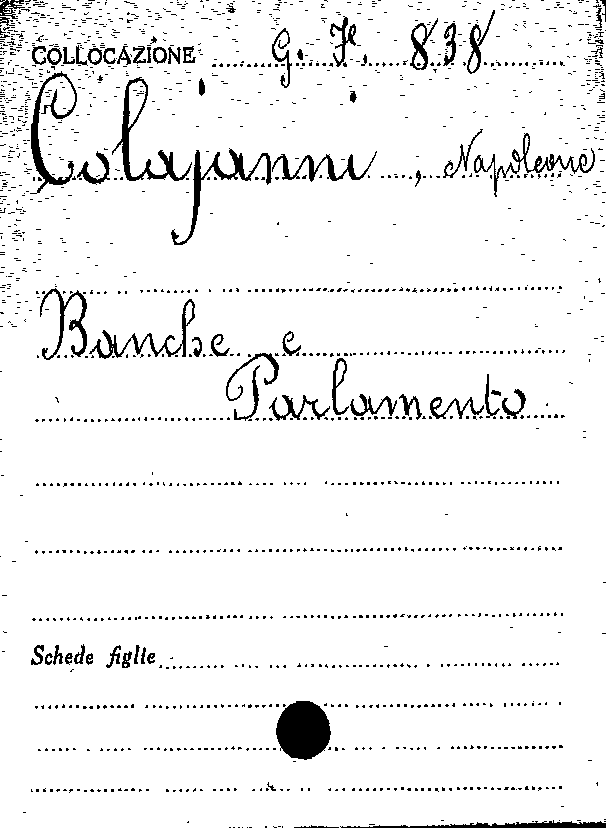 COLLOCAZIONE G. F. 838
Colajanni, Napoleone
Banche e
Parlamento
Schede figlie